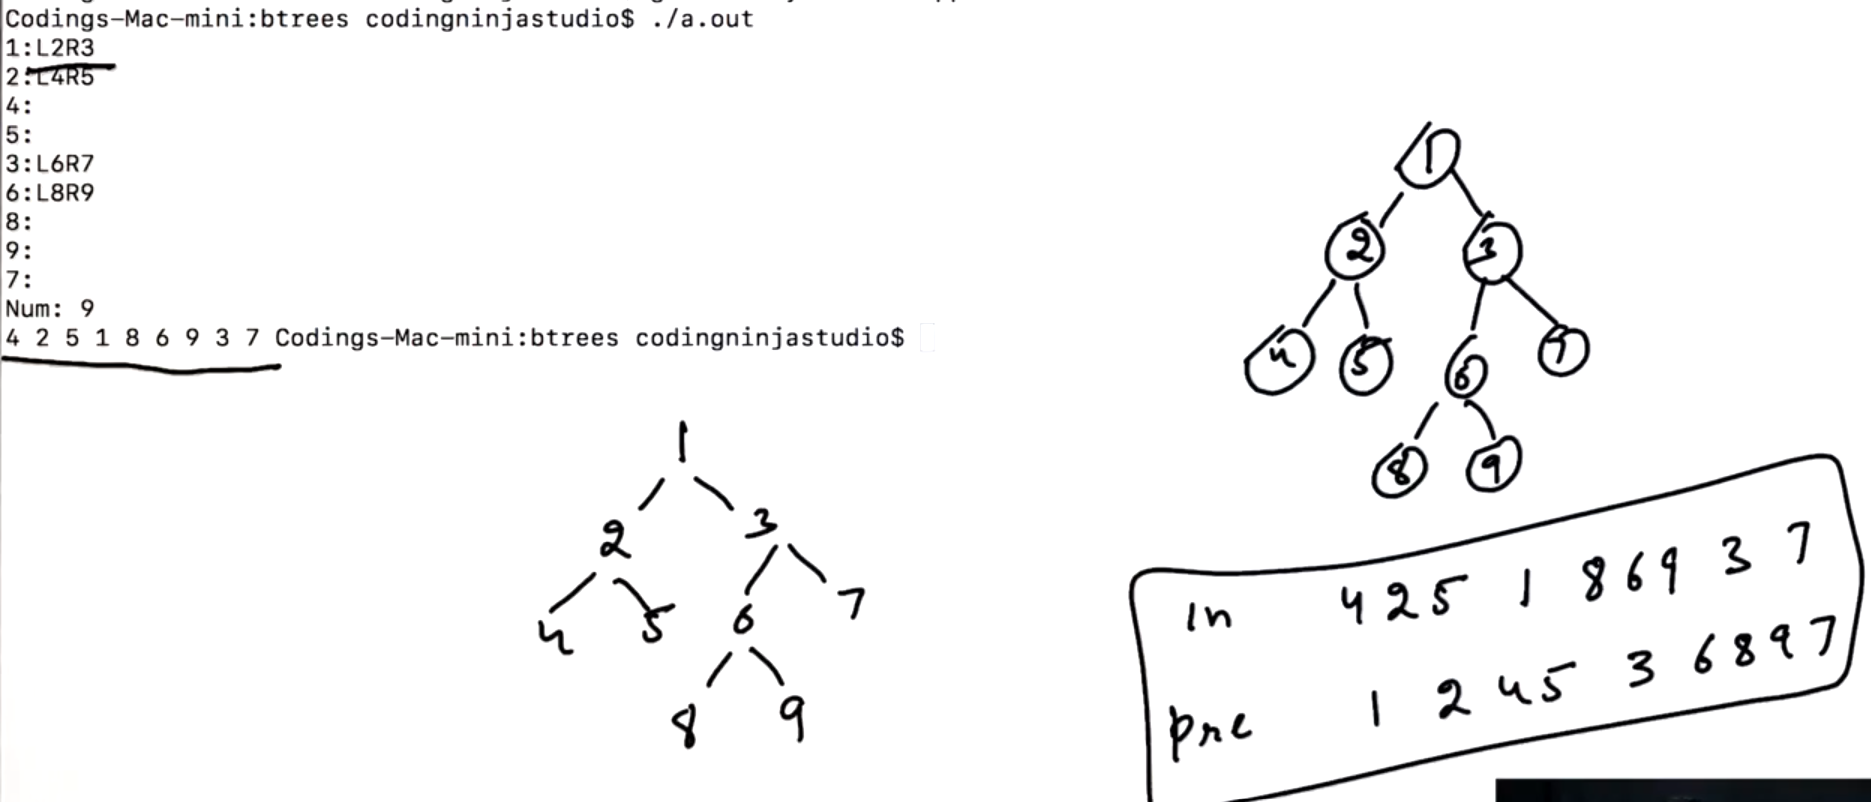 Codings-Mac-mini:btrees codingninjastudio$ ./a.out
1:L2R3
2:L4R5
4:
5:
3:L6R7
6:L8R9
8:
9:
7:
Num: 9
4 2 5 1 8 6 9 3 7 Codings-Mac-mini:btrees codingninjastudio$
1
2 3
4 5 6 7
8 9
1
2 3
4 5 6 7
8 9
in 4 2 5 1 8 6 9 3 7
pre 1 2 4 5 3 6 8 9 7